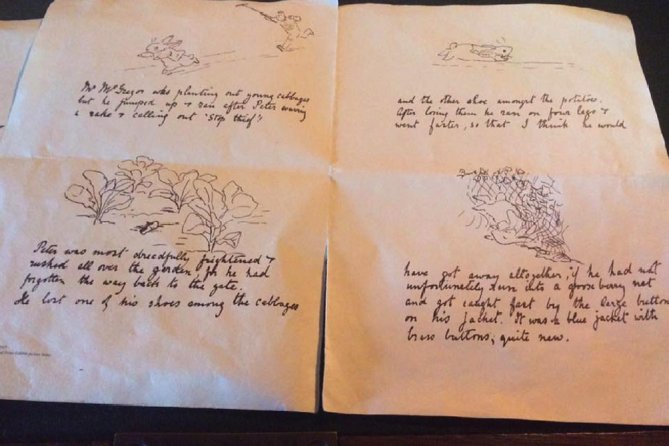 Mr McGregor was planting out young cabbages
but he jumped up & ran after Peter waving
a rake & calling out 'Stop thief'!
Peter was most dreadfully frightened &
rushed all over the garden, for he had
forgotten the way back to the gate.
He lost one of his shoes among the cabbages
and the other shoe amongst the potatoes.
After losing them he ran on four legs &
went faster, so that I think he would
have got away altogether, if he had not
unfortunately run into a gooseberry net
and got caught fast by the large buttons
on his jacket. It was a blue jacket with
brass buttons, quite new.